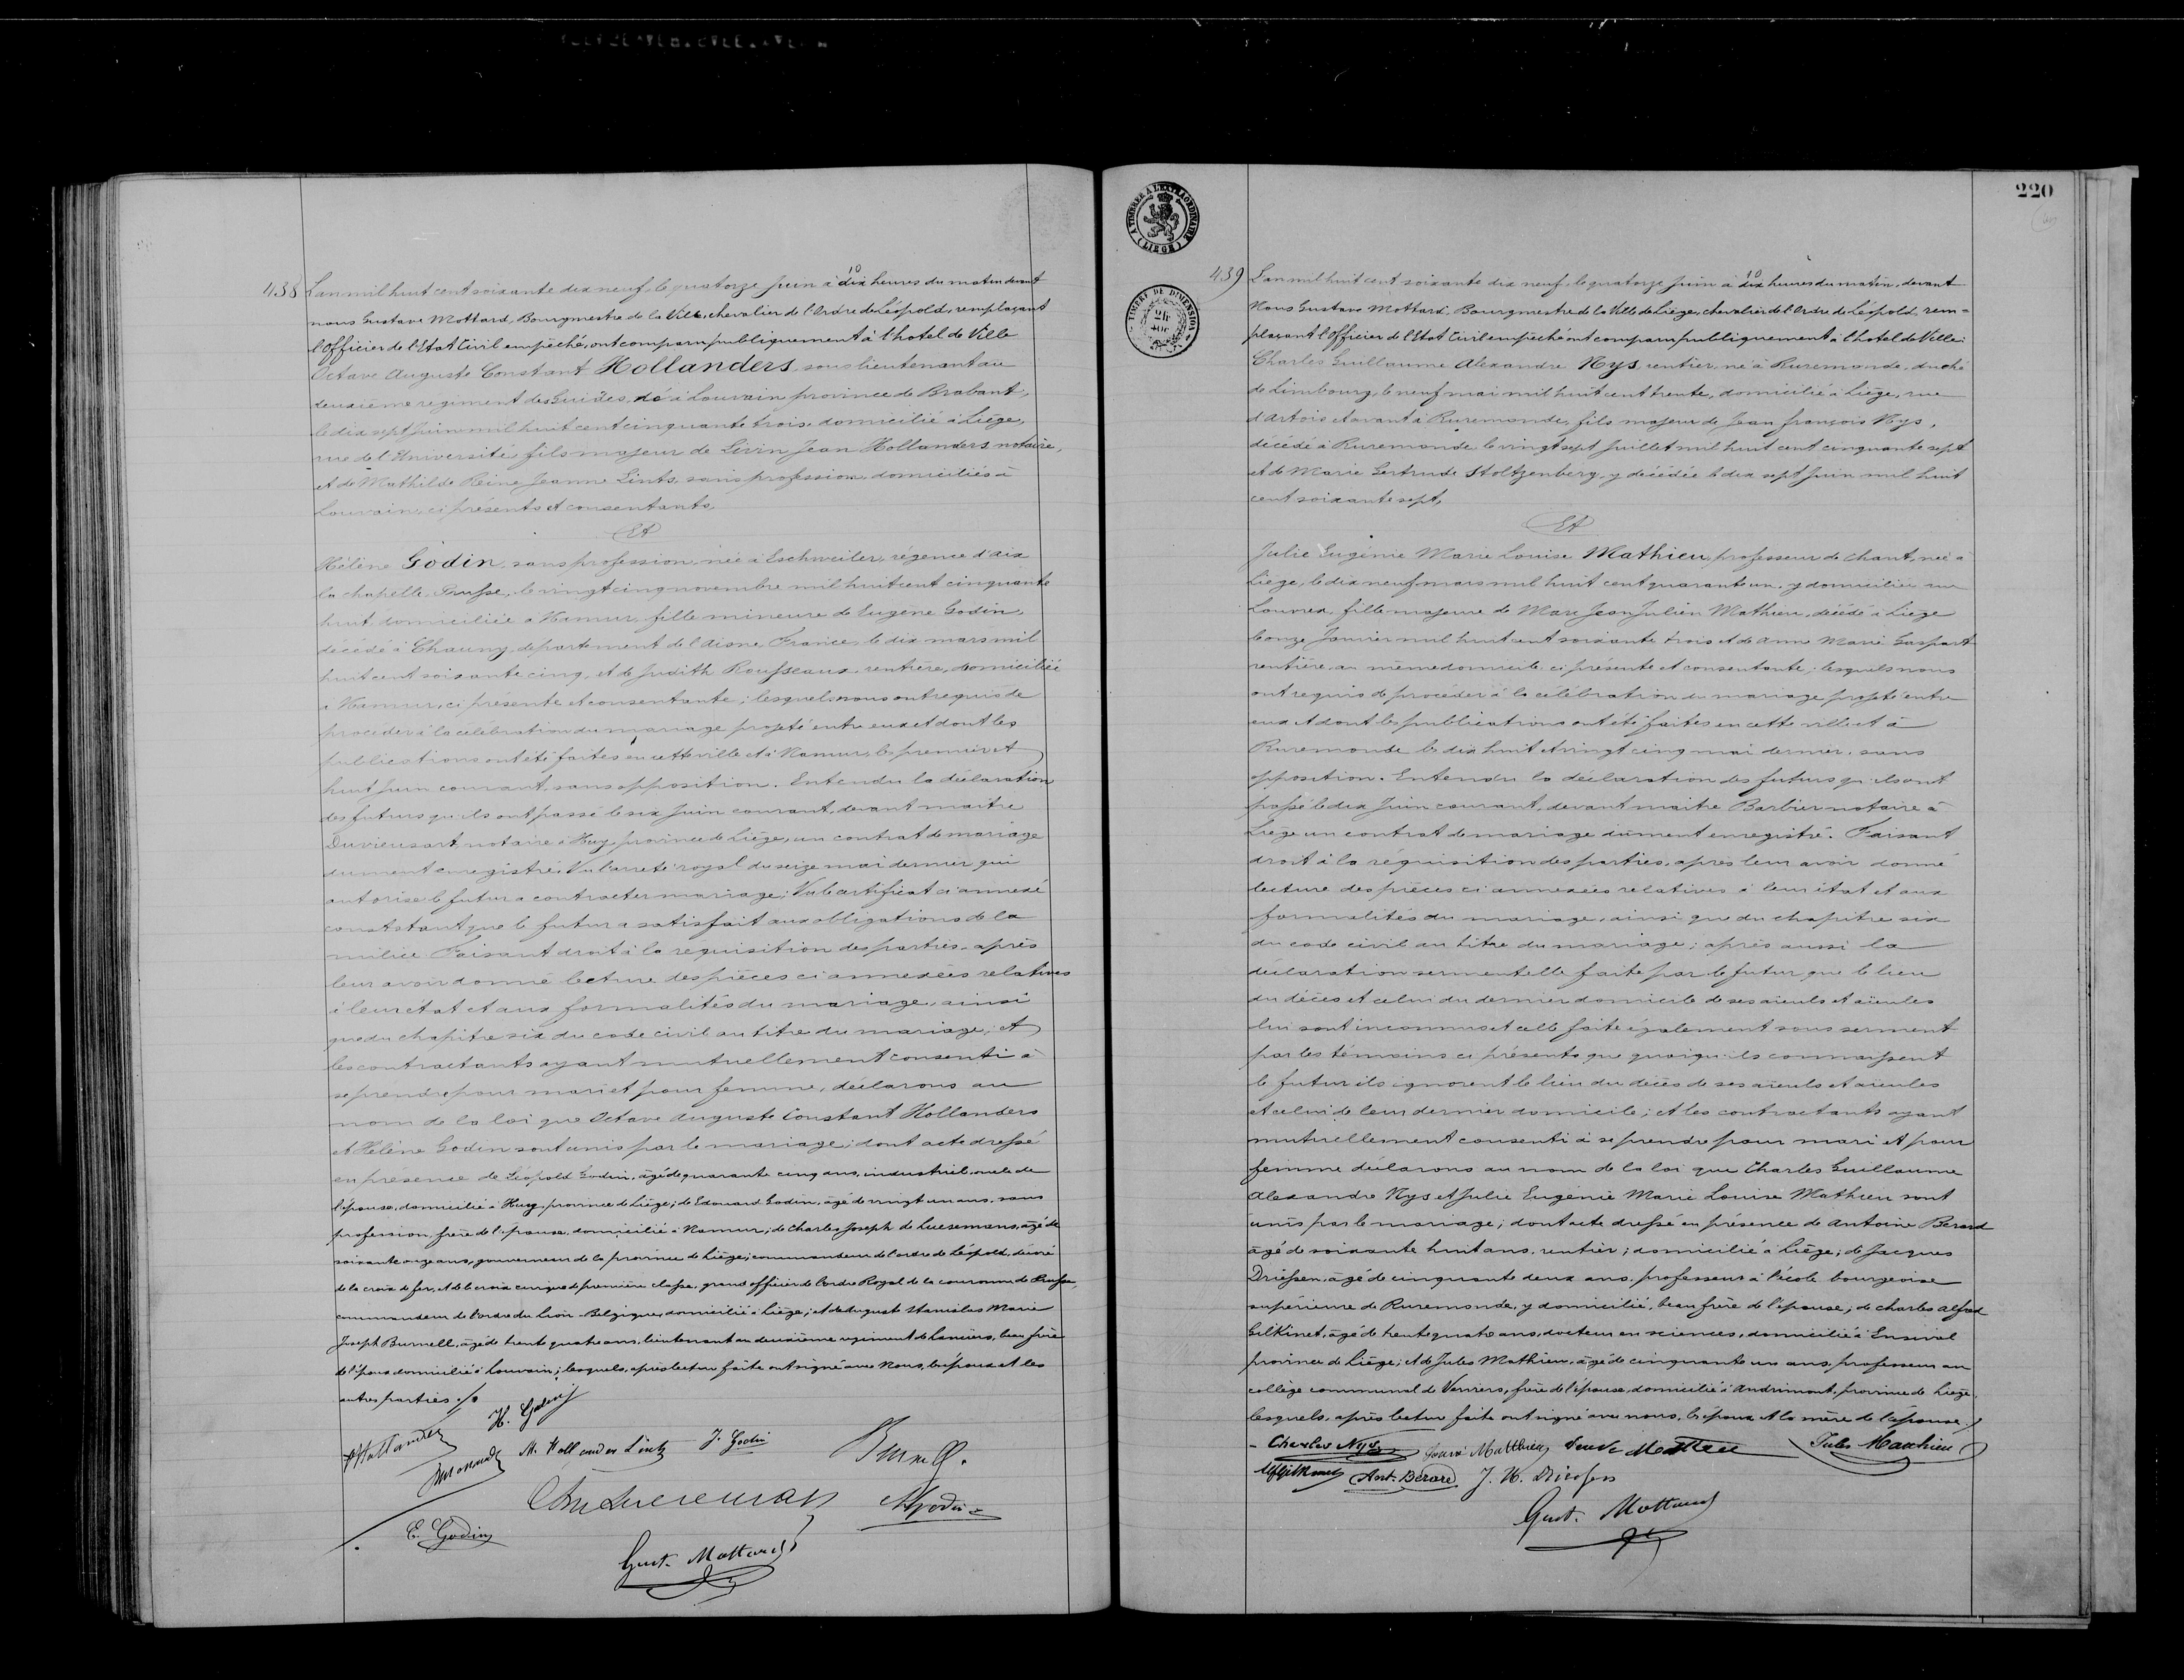 438 L'an mil huit cent soixante dix neuf, le quatorze Juin à dix 10 heures du matin devant
nous Gustave Mottard, Bourgmestre de la Ville, chevalier de l'Ordre de Léopold, remplaçant
l'Officier de l'Etat Civil empêché, ont comparu publiquement à l'hotel de Ville
Octave Auguste Constant Hollanders, sous lieutenant au
deuxième régiment des Guides, né à Louvain province de Brabant,
le dix sept Juin mil huit cent cinquante trois, domicilié à Liège,
rue de l'Université, fils majeur de Livin Jean Hollanders notaire,
et de Mathilde Reine Jeanne Lints, sans profession, domiciliés à
Louvain, ci présents et consentants,
Et
Hélène Godin, sans profession, née à Eschweiler, régence d'Aix
la chapelle, Prusse, le vingt cinq novembre mil huit cent cinquante
huit, domiciliée à Namur, fille mineure de Eugène Godin,
décédé à Chauny, département de l'Aisne, France, le dix mars mil
huit cent soixante cinq, et de Judith Rousseaux, rentière, domiciliée
à Namur, ci présente et consentante; lesquels nous ont requis de
procéder à la célébration du mariage projeté entre eux et dont les
publications ont été faites en cette ville et à Namur, les premier et
huit Juin courant, sans opposition. Entendu la déclaration
des futurs qu'ils ont passé le six Juin courant, devant maître
Duvieusart, notaire à Huy, province de Liège, un contrat de mariage
dument enregistré; Vu l'arreté royal du seize mai dernier qui
autorise le futur a contracter mariage; Vu le certificat ci annexé
constatant que le futur a satisfait aux obligations de la
milice Faisant droit à la requisition des parties, après
leur avoir donné lecture des pièces ci annexées relatives
à leur état et aux formalités du mariage, ainsi
que du chapitre six du code civil au titre du mariage; et
les contractants ayant mutuellement consenti à
se prendre pour mari et pour femme, déclarons au
nom de la loi que Octave Auguste Constant Hollanders
et Hélène Godin sont unis par le mariage; dont acte dressé
en présence de Léopold Godin, âgé de quarante cinq ans, industriel, oncle de
l'épouse, domicilié à Huy, province de Liège; de Edouard Godin, âgé de vingt un ans, sans
profession, frère de l'épouse, domicilié à Namur; de Charles Joseph de Luesemans, âgé de
soixante onze ans, gouverneur de la province de Liège, commandeur de l'ordre de Léopold, décoré
de la croix de fer, et de la croix civique de première classe, grand officier de l'ordre Royal de la couronne de Prusse,
commandeur de l'ordre du Lion Belgique, domicilié à Liège; et de Auguste Stanislas Marie
Joseph Burnell, âgé de trente quatre ans, lieutenant au deuxième régiment de Lanciers, beau frère
de l'époux domicilié à Louvain; lesquels, après lecture faite ont signé avec Nous, les époux et les
autres parties ./.
H. Godin
Hollanders
M. Hollanders Lints J. Godin Burnell.
de Luesemans Godin
E. Godin
Gust. Mottard
220
A TIMBRER A L'EXTRAORDINAIRE (LIEGE)
TIMBRE DE DIMENSION
439 L'an mil huit cent soixante dix neuf, le quatorze Juin à dix 10 heures du matin, devant
Nous Gustave Mottard, Bourgmestre de la Ville de Liège, chevalier de l'Ordre de Léopold, rem=
plaçant l'Officier de l'Etat Civil empêché ont comparu publiquement à l'hotel de Ville:
Charles Guillaume Alexandre Nys, rentier, né à Ruremonde, duché
de Limbourg, le neuf mai mil huit cent trente, domicilié à Liège, rue
d'Artois et avant à Ruremonde, fils majeur de Jean François Nys,
décédé à Ruremonde le vingt sept Juillet mil huit cent cinquante sept
et de Marie Gertrude Stoltzenberg, y décédée le dix sept Juin mil huit
cent soixante sept,
Et
Julie Eugénie Marie Louise Mathieu, professeur de chant, née à
Liège, le dix neuf mars mil huit cent quarante un, y domiciliée rue
Louvrex, fille majeure de Marc Jean Julien Mathieu, décédé à Liège
le onze Janvier mil huit cent soixante trois et de Anne Marie Gaspart
rentière, au même domicile ci présente et consentante; lesquels nous
ont requis de procéder à la célébration du mariage projeté entre
eux et dont les publications ont été faites en cette ville et à
Ruremonde les dix huit et vingt cinq mai dernier, sans
opposition. Entendu la déclaration des futurs qu'ils ont
passé le dix Juin courant, devant maitre Barbier notaire à
Liège un contrat de mariage dûment enregistré. Faisant
droit à la réquisition des parties, après leur avoir donné
lecture des pièces ci annexées relatives à leur état et aux
formalités du mariage, ainsi que du chapitre six
du code civil au titre du mariage; après aussi la
déclaration sermentelle faite par le futur que le lieu
du décès et celui du dernier domicile de ses aïeuls et aïeules
lui sont inconnus et celle faite également sous serment
par les témoins ci présents que quoiqu'ils connaissent
le futur ils ignorent le lieu du décès de ses aïeuls et aïeules
et celui de leur dernier domicile; et les contractants ayant
mutuellement consenti à se prendre pour mari et pour
femme déclarons au nom de la loi que Charles Guillaume
Alexandre Nys et Julie Eugénie Marie Louise Mathieu sont
unis par le mariage; dont acte dressé en présence de Antoine Berard
âgé de soixante huit ans, rentier; domicilié à Liège; de Jacques
Driessen, âgé de cinquante deux ans, professeur à l'école bourgeoise
supérieure de Ruremonde, y domicilié, beau frère de l'épouse; de Charles Alfred
Gilkinet, âgé de trente quatre ans, docteur en sciences, domicilié à Ensival
province de Liège; et de Jules Mathieu, âgé de cinquante un ans, professeur au
collège communal de Verviers, frère de l'épouse, domicilié à Andrimont, province de Liège,
lesquels, après lecture faite ont signé avec nous, les époux et la mère de l'épouse./
Charles Nys Mathieu Veuve Mathieu Jules Mathieu
Gilkinet Ant. Berard J. H. Driessen
Gust. Mottard